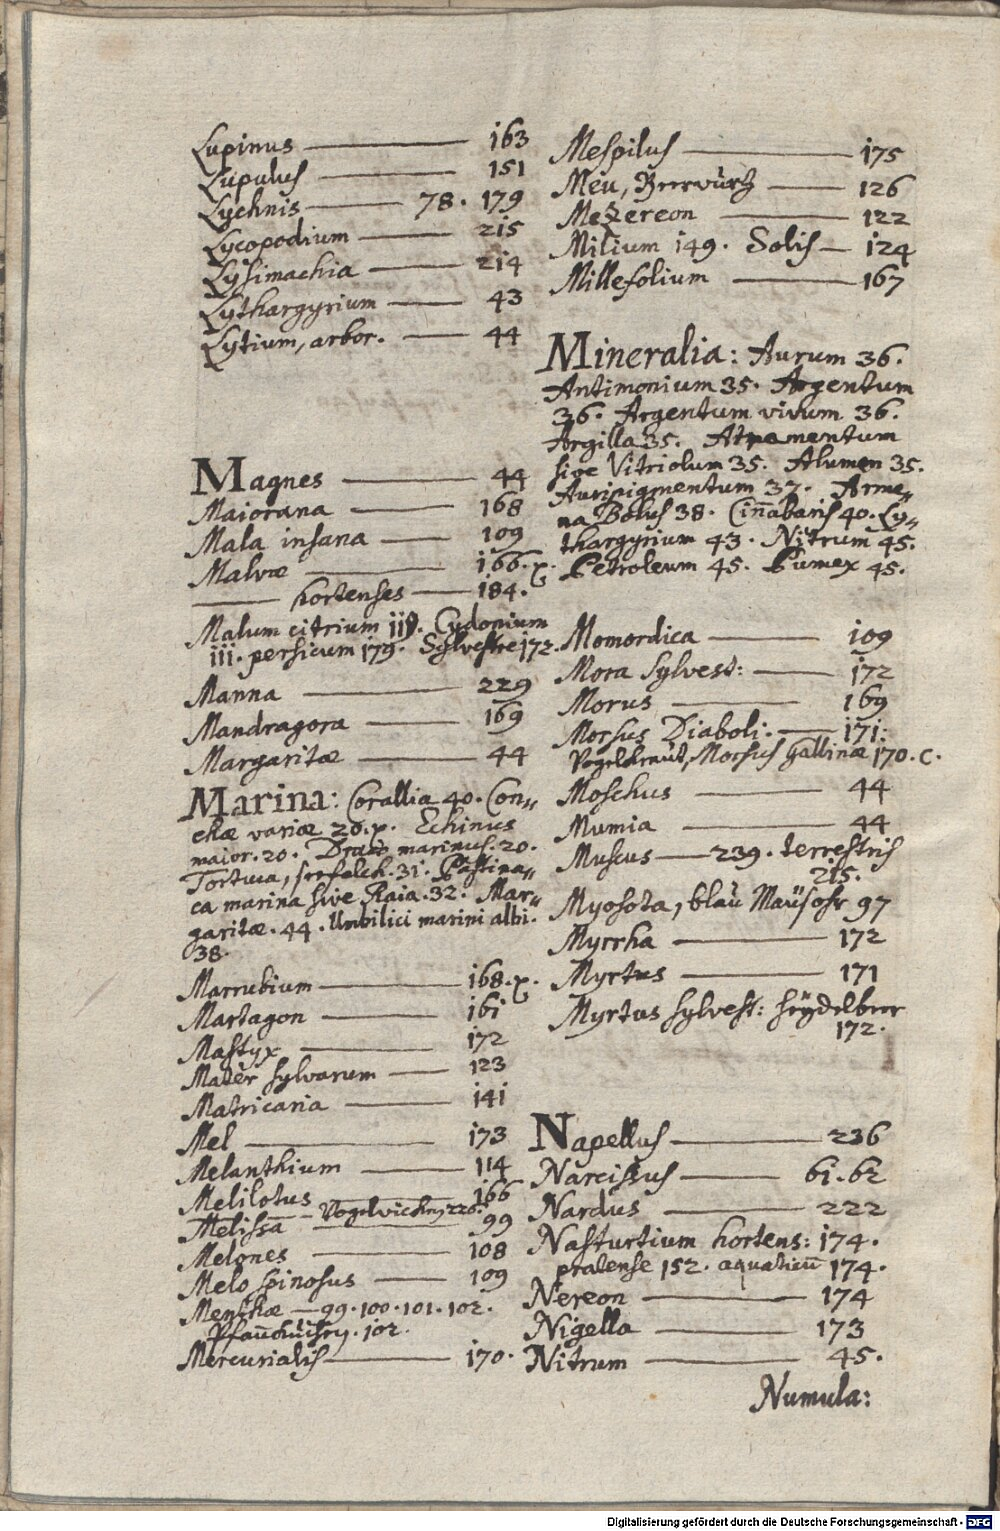 Lupinus — 163
Lupulus — 151
Lychnis — 78. 179
Lycopodium — 215
Lysimachia — 214
Lythargyrium — 43
Lytium, arbor. — 44
Magnes — 44
Maiorana — 168
Mala insana — 109
Malvæ — 166. p.
— hortenses — 184.
Malum citrium 119. Cydonium
111. persicum 179. Sylvestre 172.
Manna — 229
Mandragora — 169
Margaritæ — 44
Marina: Corallia 40. Con„
chæ variæ 20. p. Echinus
maior. 20. Draco marinus. 20.
Tortuca, 31. Pastina„
ca marina sive Raia. 32. Mar„
garitæ. 44. Umbilici marini albi.
38.
Marrubium — 168. p.
Martagon — 161
Mastyx — 172
Mater sylvarum — 123
Matricaria — 141
Mel — 173
Melanthium — 114
Melilotus — 166
Vogelwicken 226.
Melissa — 99
Melones — 108
Melo spinosus — 109
Menthæ — 99. 100. 101. 102.
102.
Mercurialis — 170.
Mespilus — 175
Meu, Beerwürtz — 126
Mezereon — 122
Milium 149. Solis — 124
Millefolium — 167
Mineralia: Aurum 36.
Antimonium 35. Argentum
36. Argentum vivum 36.
Argilla 35. Atramentum
sive Vitriolum 35. Alumen 35.
Auripigmentum 37. Arme„
na Bolus 38. Cin̄abaris 40. Ly„
thargyrium 43. Nitrum 45.
Petroleum 45. Pumex 45.
Momordica — 109
Mora sylvest: — 172
Morus — 169
Morsus Diaboli. — 171.
Vogelkraut, Morsus Gallinæ 170. c.
Moschus — 44
Mumia — 44
Muscus — 239. terrestris
215.
Myosota, blau Mausohr 97
Myrrha — 172
Myrtus — 171
Myrtus sylvest: heydelbeer
172.
Napellus — 236
Narcissus — 61. 62
Nardus — 222
Nasturtium hortens: 174.
pratense 152. aquaticū 174.
Nereon — 174
Nigella — 173
Nitrum — 45.
Numula:
Digitalisierung gefördert durch die Deutsche Forschungsgemeinschaft - DFG